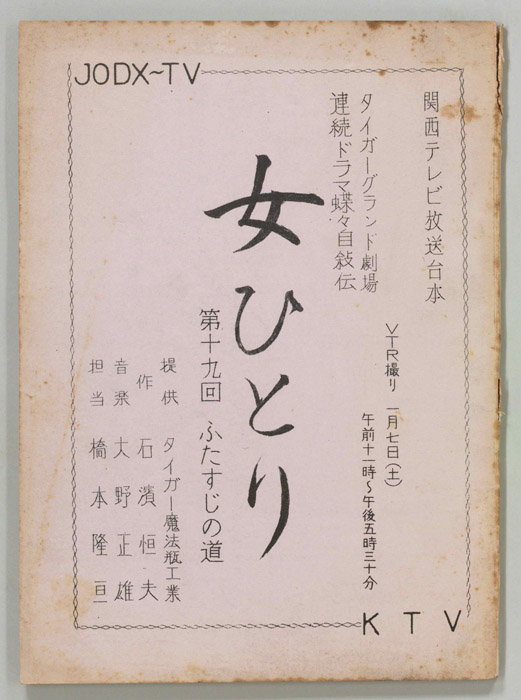 JODX~TV
関西テレビ放送台本
タイガーグランド劇場
連続ドラマ蝶々自敍伝
女ひとり
第十九回 ふたすじの道
VTR撮り 一月七日(土)
午前十一時~午後五時三十分
提供 タイガー魔法瓶工業
作 石濱恒夫
音楽 大野正雄
担当 橋本隆亘
KTV